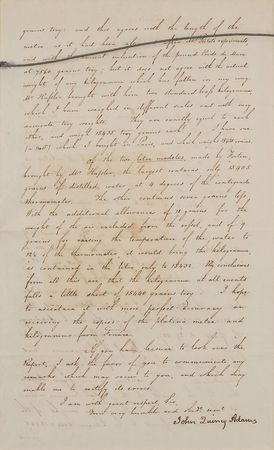 grains troy; and this agrees with the length of the
metre as it had been
and with the
at 7560 grains troy; but it does not agree with the actual
weight of any kilogramme which has fallen in my way.
Mr Hassler brought with him two standard brass kilogrammes,
which I have weighed in different scales and with very
accurate troy weights. They are exactly equal to each
other, and weigh grains each. I have one
which I bought in and which weighs grains.
Of the two litre modules, made by Fortin,
brought by Mr Hassler, the largest contains only 15405
grains of distilled water, at 4 degrees of the centigrade
thermometer. The other contains seven grains less.
With the additional allowance of 18 grains for the
weight of the air excluded from the vessel, and of 9
grains for raising the temperature of the water to
of the thermometer, it would bring the kilogramme
as contained in the litre, only to 15432. My conclusion
from all this is, that the kilogramme at all events
falls a little short of 15440 grains troy. I hope
to ascertain it with more perfect accuracy on
receiving the copies of the platina metre and
kilogramme from France.
If you have leisure to look over the
Report, I ask the favor of you to communicate any
remarks which may occur to you, and which may
enable me to rectify its errors.
I am with great respect, Sir,
Your very humble and obedt. servt.
John Quincy Adams